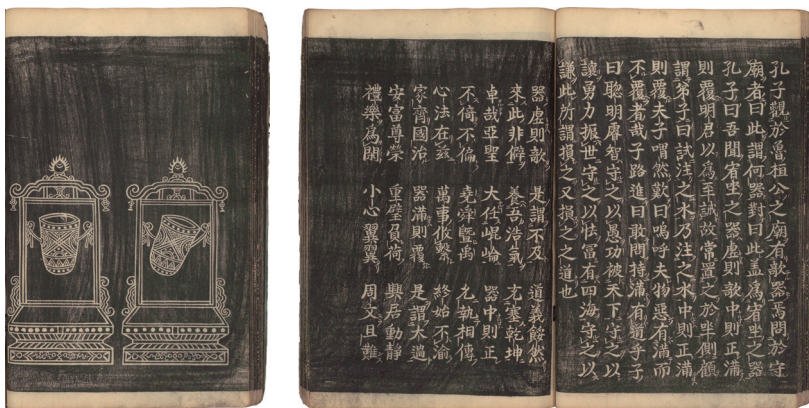 孔子觀於魯桓公之廟有欹器焉問於守
廟者曰此謂何器對曰此蓋為宥坐之器
孔子曰吾聞宥坐之器虛則欹中則正滿
則覆明君以為至誡故常置之於坐側顧
謂弟子曰試注之水乃注之水中則正滿
則覆夫子喟然歎曰嗚呼夫物惡有滿而
不覆者哉子路進曰敢問持滿有道乎子
曰聰明睿智守之以愚功被天下守之以
讓勇力振世守之以怯富有四海守之以
謙此所謂損之又損之之道也
器虛則欹 是謂不及 道義餒然
來此非僻 養吾浩氣 充塞乾坤
卓哉亞聖 大任崐崘 器中則正
不倚不偏 堯舜曁禹 允執相傳
心法在茲 萬事攸繫 終始不渝
家齊國治 器滿則覆 是謂太過
安富尊榮 重璧負荷 興居動靜
禮樂為閑 小心翼翼 周文且難